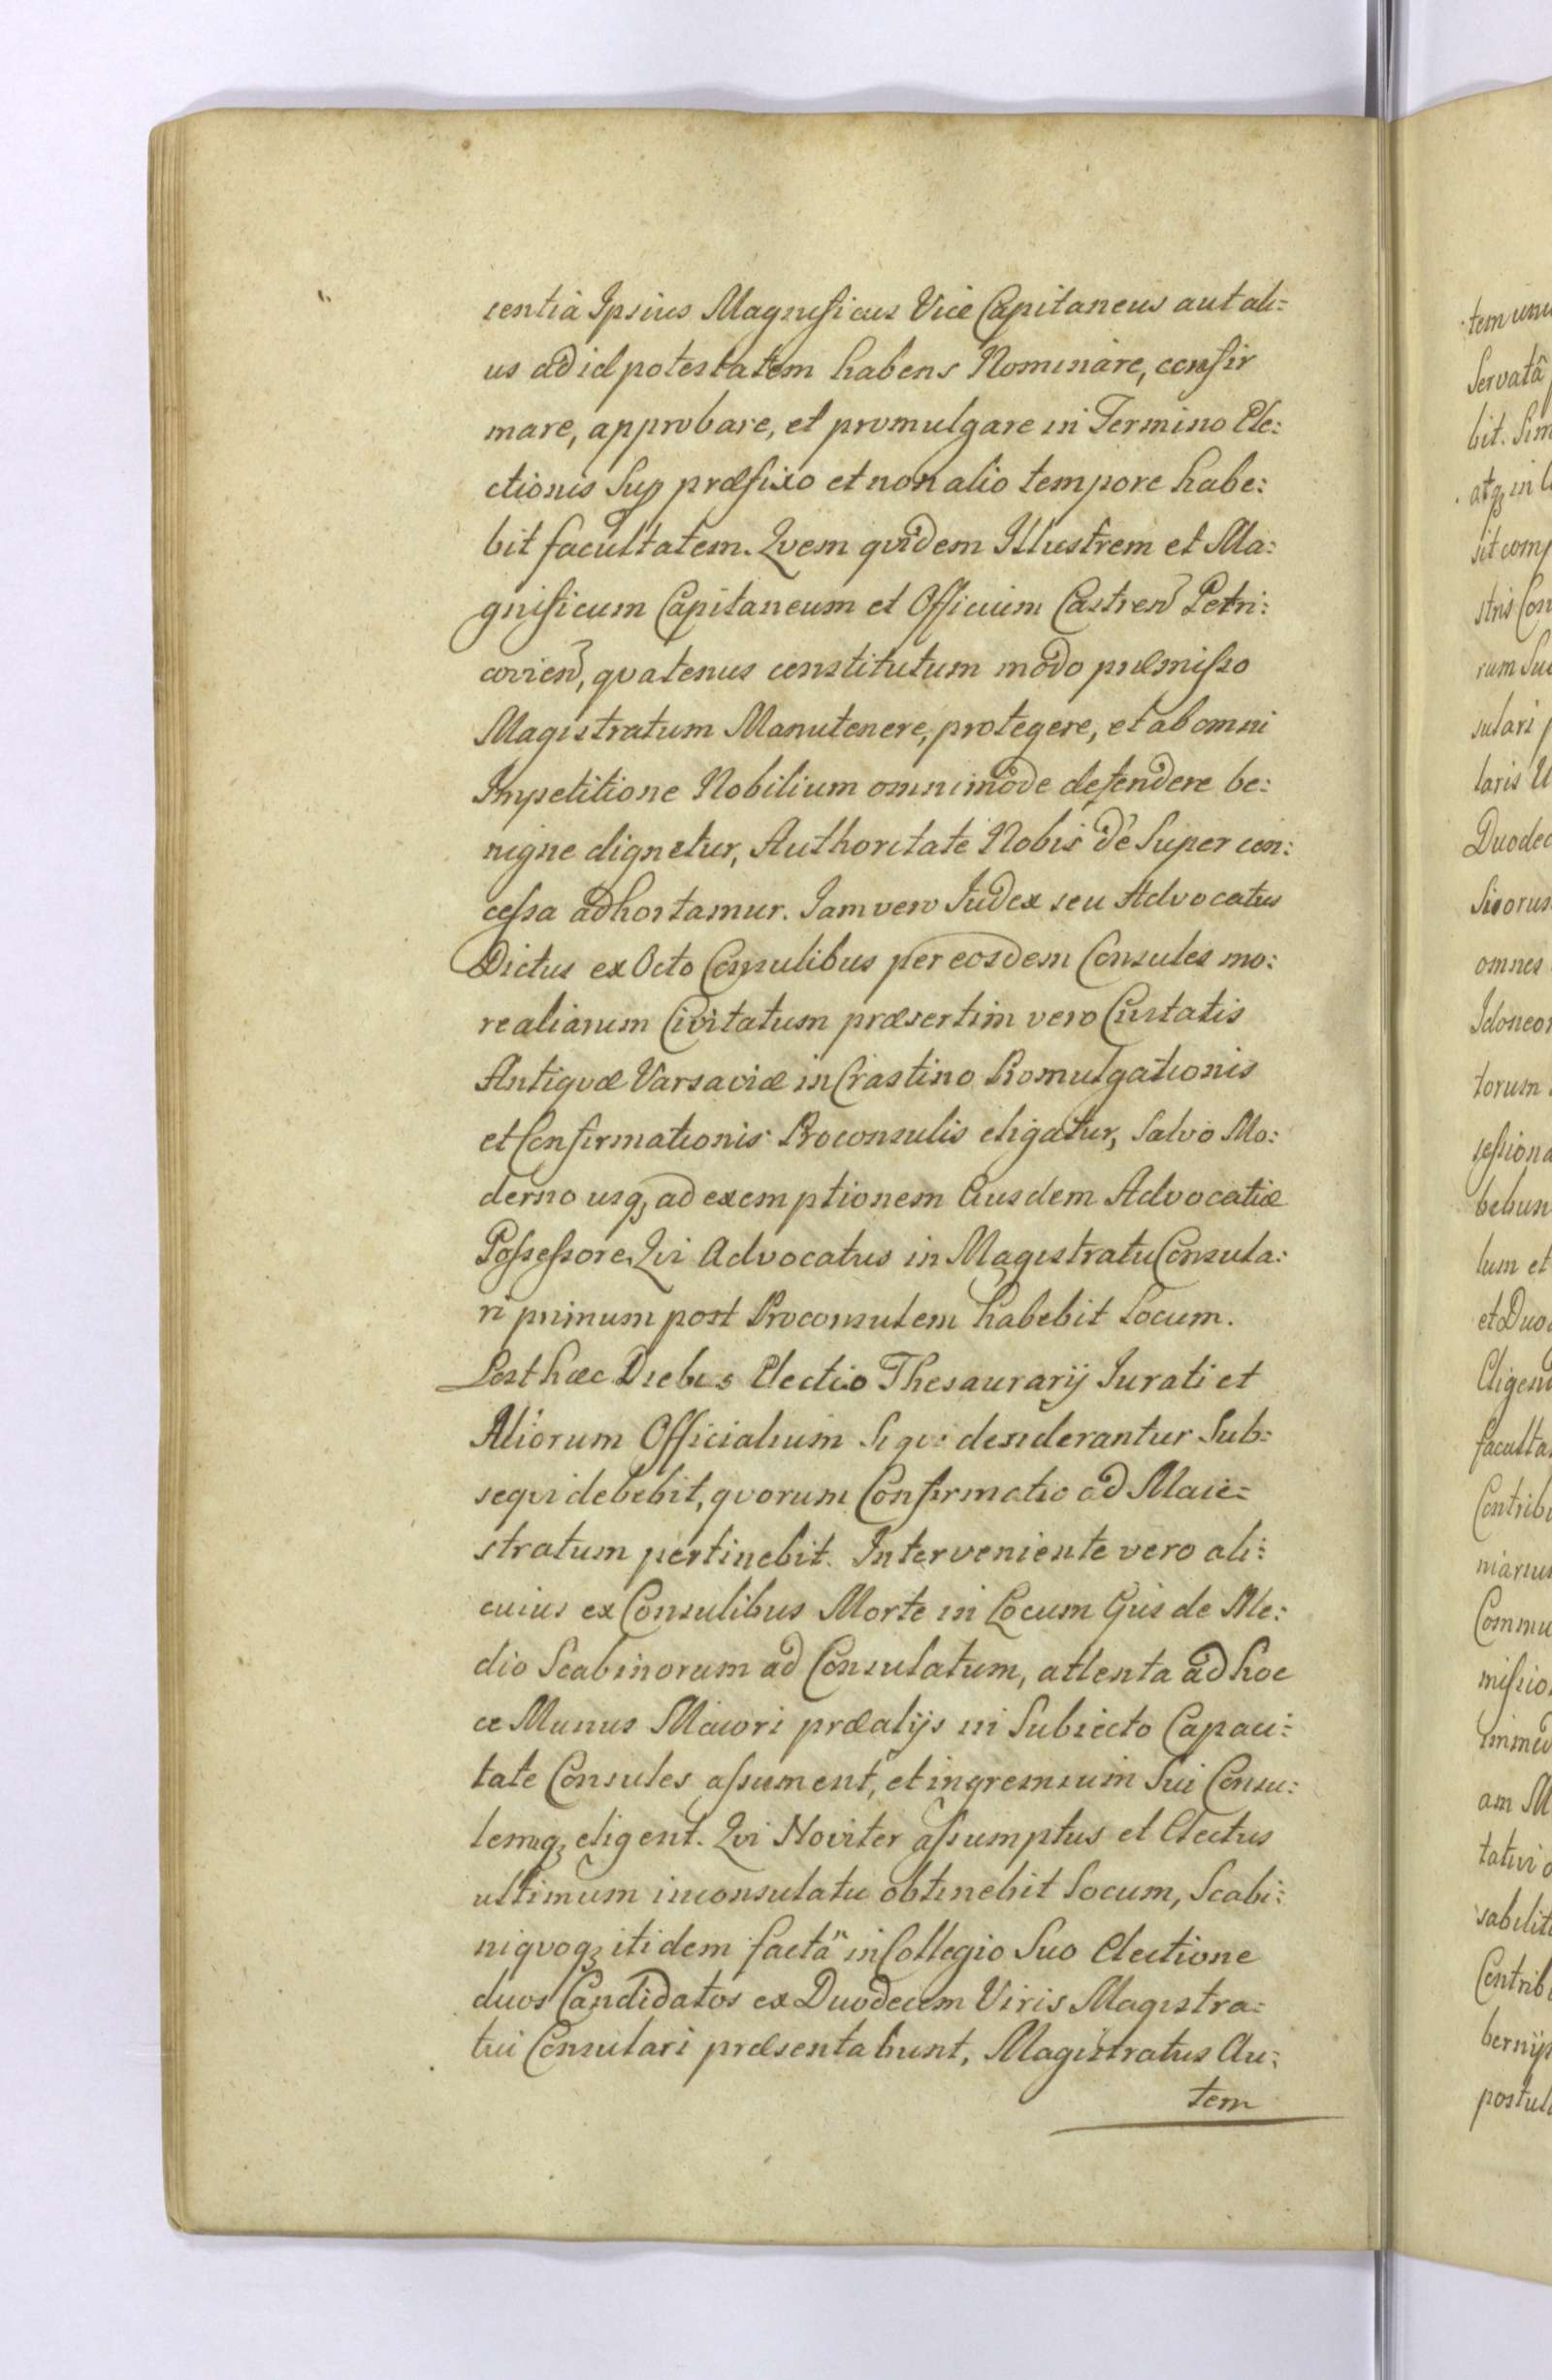 sentia Ipsius Magnificus Vice Capitaneus aut ali=
us ad id potestatem habens Nominare, confir
mare, approbare, et promulgare in Termino Ele:
ctionis Sup præfixo et non alio tempore habe:
bit facultatem. Qvem qvidem Illustrem et Ma:
gnificum Capitaneum et Officium Castren Petri:
covien, qvatenus constitutum modo præmisso
Magistratum Manutenere, protegere, et ab omni
Impetitione Nobilium omnimode defendere be:
nigne dignetur, Authoritate Nobis de Super con:
cessa adhortamur. Iam vero Iudex seu Advocatus
Dictus ex Octo Consulibus per eosdem Consules mo:
re aliarum Civitatum præsertim vero Civitatis
Antiqvæ Varsaviæ in Crastino Promulgationis
et Confirmationis Proconsulis eligatur, Salvo Mo:
derno usq, ad exemptionem Eiusdem Advocatiæ
Possessore, Qvi Advocatus in Magistratu Consula:
ri primum post Proconsulem habebit Locum.
Post hæc Diebus Electio Thesaurarij Iurati et
Aliorum Officialium Si qvi desiderantur Sub=
seqvi debebit, qvorum Confirmatio ad Maie=
stratum pertinebit. Interveniente vero ali:
cuius ex Consulibus Morte in Locum Ejus de Me:
dio Scabinorum ad Consulatum, attenta ad hoc
ce Munus Maiori præ alijs in Subiecto Capaci:
tate Consules assument, et in gremium Sui Consu:
lemq, eligent. Qvi Noviter assumptus et Electus
ultimum in consulatu obtinebit Locum, Scabi:
ni qvoq, itidem factâ in Collegio Suo Electione
duos Candidatos ex Duodecem Viris Magistra=
tui Consulari præsentabunt, Magistratus Au:
tem
tem
Servatâ
bit.
atq, in
sit
stris
rum
sulari
laris
omnes
torum
lum et
et
am